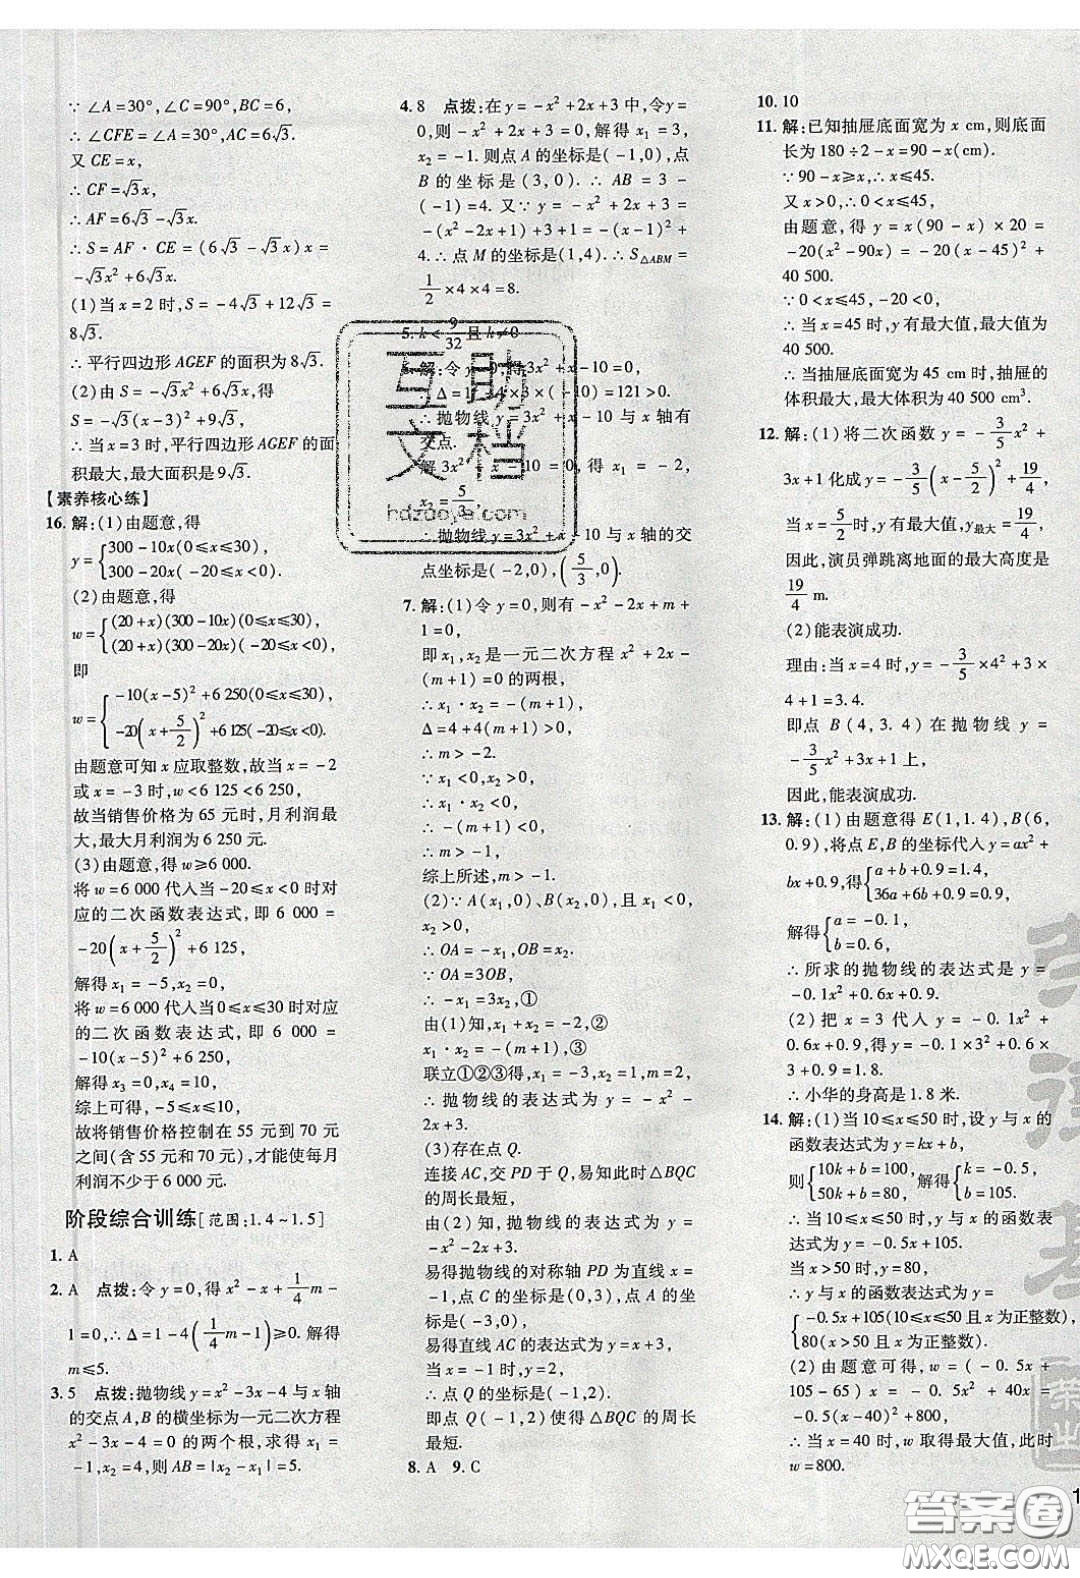 ∵ ∠A=30°,∠C=90°,BC=6,
∴ ∠CFE=∠A=30°,AC=6√3.
又 CE=x,
∴ CF=√3x,
∴ AF=6√3-√3x.
∴ S=AF·CE=(6√3-√3x)x=
-√3x²+6√3x.
(1)当 x=2 时,S=-4√3+12√3=
8√3.
∴ 平行四边形 AGEF 的面积为 8√3.
(2)由 S=-√3x²+6√3x,得
S=-√3(x-3)²+9√3,
∴ 当 x=3 时,平行四边形 AGEF 的面
积最大,最大面积是 9√3.
【素养核心练】
16. 解:(1)由题意,得
y={300-10x(0≤x≤30),
300-20x(-20≤x<0).
(2)由题意,得
w={(20+x)(300-10x)(0≤x≤30),
(20+x)(300-20x)(-20≤x<0),
即
w={-10(x-5)²+6 250(0≤x≤30),
-20(x+5/2)²+6 125(-20≤x<0).
由题意可知 x 应取整数,故当 x=-2
或 x=-3 时,w<6 125<6 250,
故当销售价格为 65 元时,月利润最
大,最大月利润为 6 250 元.
(3)由题意,得 w≥6 000.
将 w=6 000 代入当 -20≤x<0 时对
应的二次函数表达式,即 6 000 =
-20(x+5/2)²+6 125,
解得 x₁=-5,x₂=0,
将 w=6 000 代入当 0≤x≤30 时对应
的二次函数表达式,即 6 000 =
-10(x-5)²+6 250,
解得 x₃=0,x₄=10,
综上可得,-5≤x≤10,
故将销售价格控制在 55 元到 70 元
之间(含 55 元和 70 元),才能使每月
利润不少于 6 000 元.
阶段综合训练[范围:1.4~1.5]
1. A
2. A 点拨:令 y=0,得 x²-x+1/4m-
1=0,∴ Δ=1-4(1/4m-1)≥0. 解得
m≤5.
3. 5 点拨:抛物线 y=x²-3x-4 与 x 轴
的交点 A,B 的横坐标为一元二次方程
x²-3x-4=0 的两个根,求得 x₁=
-1,x₂=4,则 AB=|x₂-x₁|=5.
4. 8 点拨:在 y=-x²+2x+3 中,令 y=
0,则-x²+2x+3=0. 解得 x₁=3,
x₂=-1. 则点 A 的坐标是(-1,0),点
B 的坐标是(3,0). ∴ AB=3-
(-1)=4. 又∵ y=-x²+2x+3=
-(x²-2x+1)+3+1=-(x-1)²+
4. ∴ 点 M 的坐标是(1,4). ∴ S△ABM=
1/2×4×4=8.
5. k<9/32且 k≠0
6. 解:令 y=0,得 3x²+x-10=0,
∵ Δ=1²-4×3×(-10)=121>0.
∴ 抛物线 y=3x²+x-10 与 x 轴有
交点.
解 3x²+x-10=0,得 x₁=-2,
x₂=5/3,
∴ 抛物线 y=3x²+x-10 与 x 轴的交
点坐标是(-2,0),(5/3,0).
7. 解:(1)令 y=0,则有-x²-2x+m+
1=0,
即 x₁,x₂是一元二次方程 x²+2x-
(m+1)=0 的两根,
∴ x₁·x₂=-(m+1),
Δ=4+4(m+1)>0,
∴ m>-2.
∵ x₁<0,x₂>0,
∴ x₁·x₂<0,
∴ -(m+1)<0,
∴ m>-1,
综上所述,m>-1.
(2)∵ A(x₁,0)、B(x₂,0),且 x₁<0,
x₂>0,
∴ OA=-x₁,OB=x₂.
∵ OA=3OB,
∴ -x₁=3x₂,①
由(1)知,x₁+x₂=-2,②
x₁·x₂=-(m+1),③
联立①②③得,x₁=-3,x₂=1,m=2,
∴ 抛物线的表达式为 y=-x²-
2x+3.
(3)存在点 Q.
连接 AC,交 PD 于 Q,易知此时△BQC
的周长最短,
由(2)知,抛物线的表达式为 y=
-x²-2x+3,
易得抛物线的对称轴 PD 为直线 x=
-1,点 C 的坐标是(0,3),点 A 的坐标
是(-3,0),
易得直线 AC 的表达式为 y=x+3,
当 x=-1 时,y=-1+3=2,
∴ 点 Q 的坐标为(-1,2),
即点 Q(-1,2)使得△BQC 的周长
最短.
8. A 9. C
10. 10
11. 解:已知抽屉底面宽为 x cm,则底面
长为 180÷2-x=90-x(cm).
∵ 90-x≥x,∴ x≤45.
又 x>0,∴ 0<x≤45.
由题意,得 y=x(90-x)×20=
-20(x²-90x)=-20(x-45)²+
40 500.
∵ 0<x≤45,-20<0,
∴ 当 x=45 时,y 有最大值,最大值为
40 500.
∴ 当抽屉底面宽为 45 cm 时,抽屉的
体积最大,最大体积为 40 500 cm³.
12. 解:(1)将二次函数 y=-3/5x²+
3x+1 化成 y=-3/5(x-5/2)²+19/4,
当 x=5/2时,y 有最大值,y最大=19/4,
因此,演员弹跳离地面的最大高度是
19/4 m.
(2)能表演成功.
理由:当 x=4 时,y=-3/5×4²+3×
4+1=3.4.
即点 B(4,3.4)在抛物线 y=
-3/5x²+3x+1 上,
因此,能表演成功.
13. 解:(1)由题意得 E(1,1.4),B(6,
0.9),将点 E,B 的坐标代入 y=ax²+
bx+0.9,得{a+b+0.9=1.4,
36a+6b+0.9=0.9,
解得{a=-0.1,
b=0.6,
∴ 所求的抛物线的表达式是 y=
-0.1x²+0.6x+0.9.
(2)把 x=3 代入 y=-0.1x²+
0.6x+0.9,得 y=-0.1×3²+0.6×
3+0.9=1.8.
∴ 小华的身高是 1.8 米.
14. 解:(1)当 10≤x≤50 时,设 y 与 x 的
函数表达式为 y=kx+b,
则{10k+b=100,
50k+b=80,
解得{k=-0.5,
b=105.
∴ 当 10≤x≤50 时,y 与 x 的函数表
达式为 y=-0.5x+105.
当 x>50 时,y=80,
∴ y 与 x 的函数表达式为 y=
{-0.5x+105(10≤x≤50 且 x 为正整数),
80(x>50 且 x 为正整数).
(2)由题意可得,w=(-0.5x+
105-65)x=-0.5x²+40x=
-0.5(x-40)²+800,
∴ 当 x=40 时,w 取得最大值,此时
w=800.
互助文档
hdzaoye.com
答案圈
MXQE.COM
1